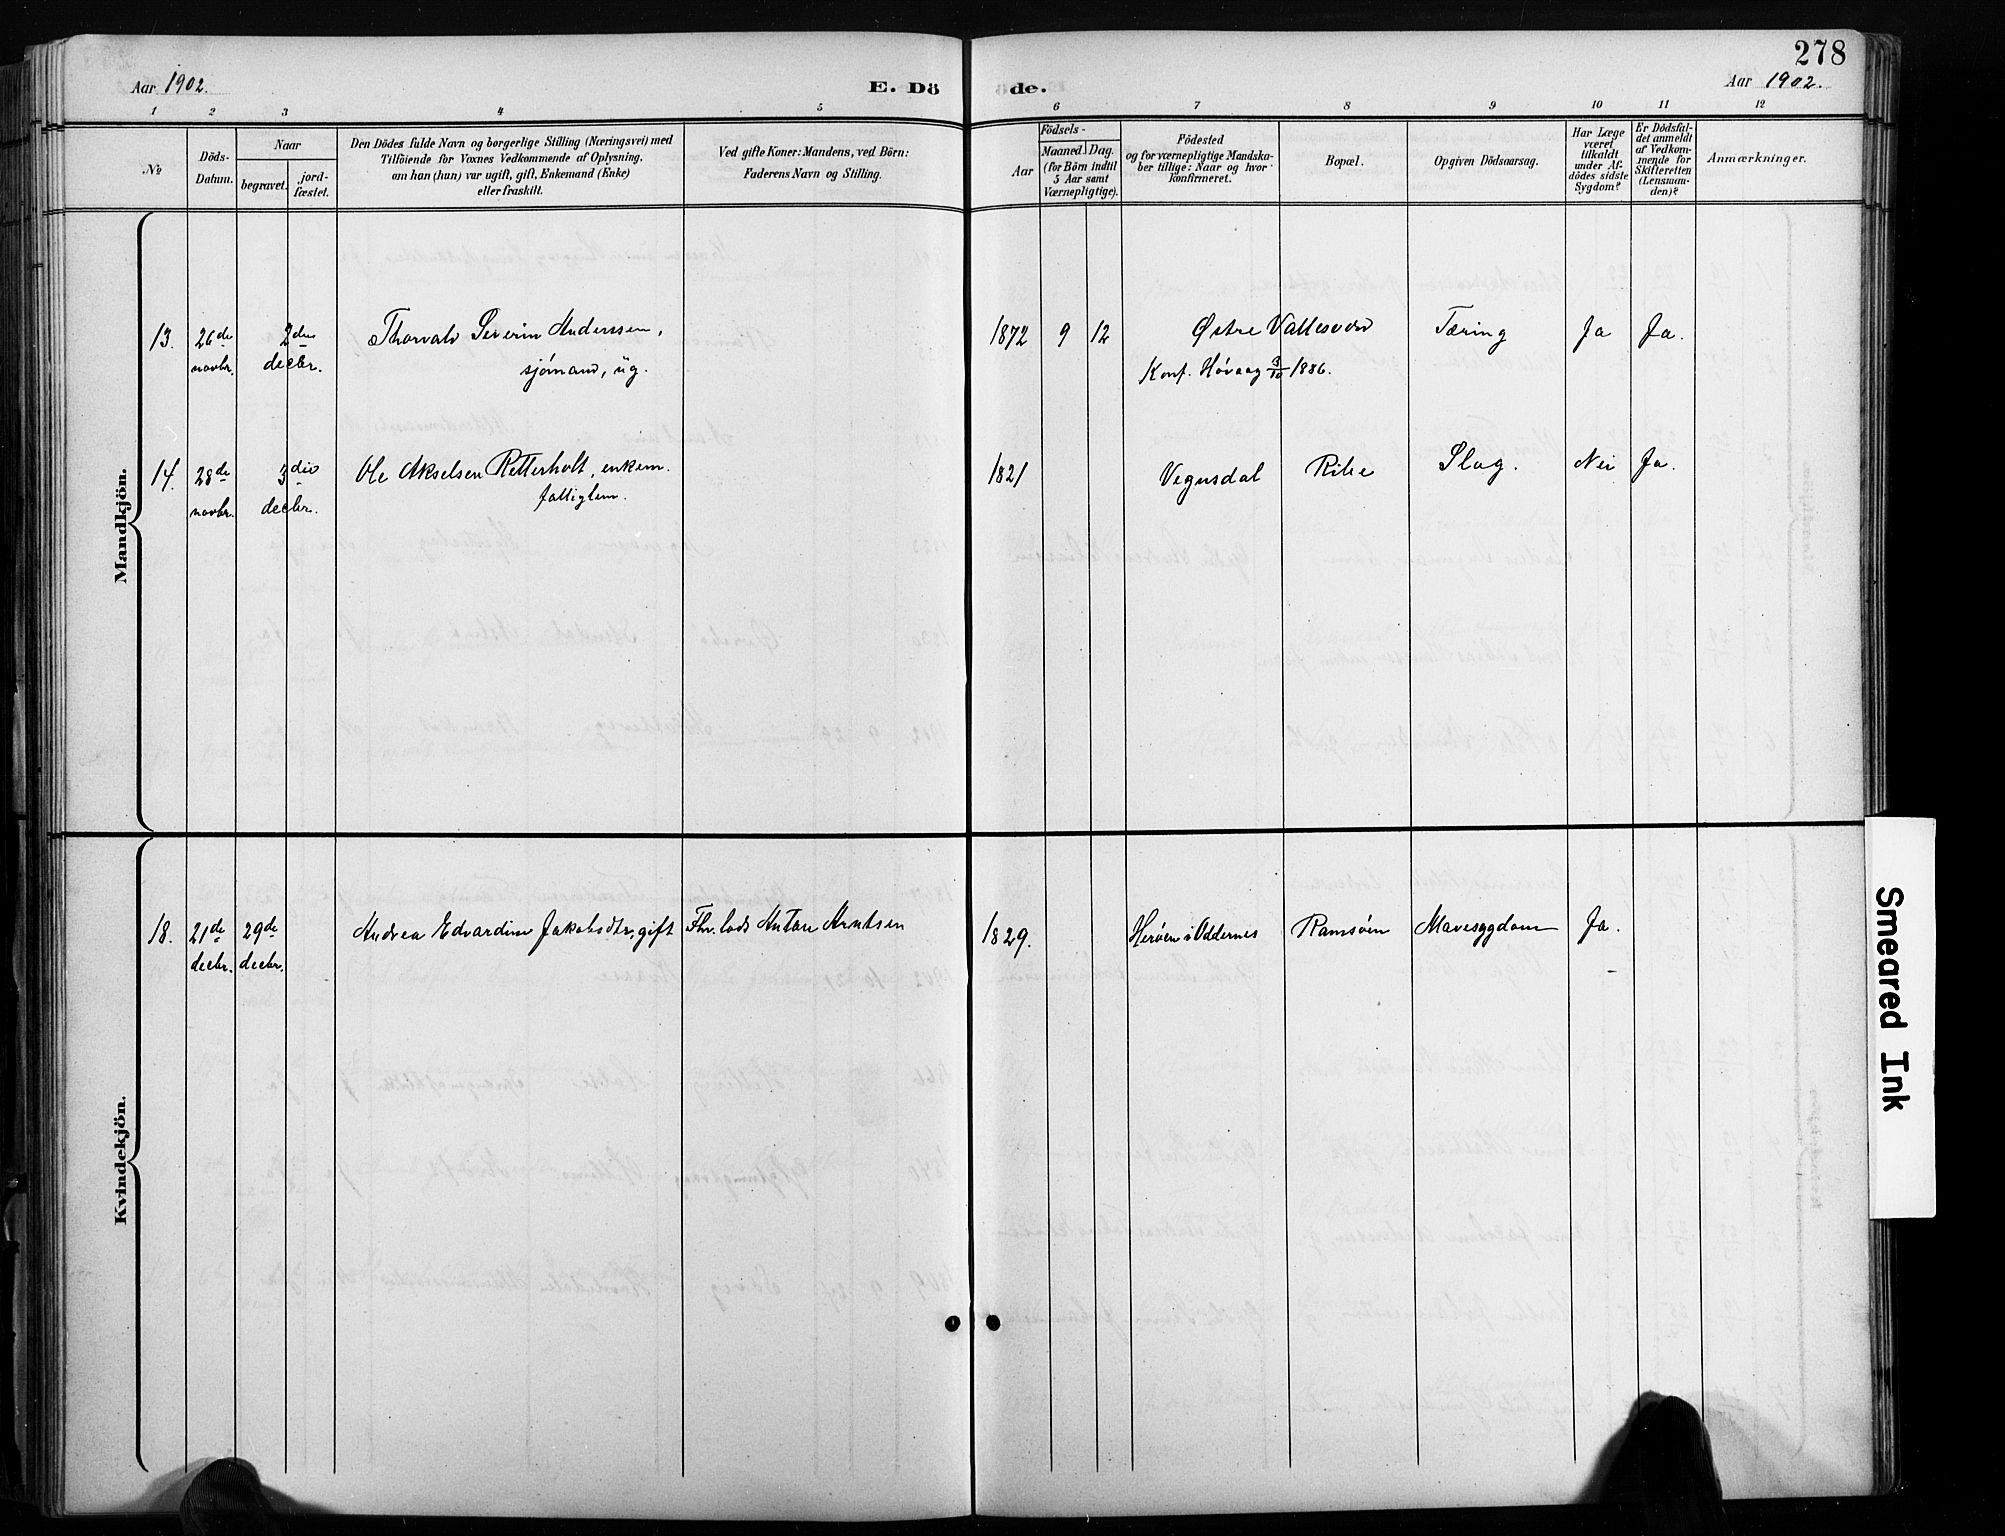 278
Aar 1902.
E. Dö
de.
Aar 1902.
1 2 3 4 5 6 7 8 9 10 11 12
№
Döds-
Datum.
Naar
begravet.
jord-
fæstet.
Den Dödes fulde Navn og borgerlige Stilling (Næringsvei) med
Tilföiende for Voxnes Vedkommende af Oplysning,
om han (hun) var ugift, gift, Enkemand (Enke)
eller fraskilt.
Ved gifte Koner: Mandens, ved Börn:
Faderens Navn og Stilling.
Födsels-
Aar
Maaned. Dag.
(for Börn indtil
5 Aar samt
Værnepligtige).
Födested
og for værnepligtige Mandska-
ber tillige: Naar og hvor
konfirmeret.
Bopæl.
Opgiven Dödsaarsag.
Har Læge
været
tilkaldt
under Af-
dödes sidste
Sygdom?
Er Dödsfal-
det anmeldt
af Vedkom-
mende for
Skifteretten
(Lensman-
den)?
Anmærkninger.
Mandkjön.
13. 26de 2den Thorvald Severin Anderssen, 1872 9 12 Østre Vallesverd Tæring Ja Ja.
novbr. decbr. sjømand, ug. Konf. Høvaag 3/10 1886.
14. 28de 3die Ole Akselsen Retterholt, enkem. 1821 Vegusdal Ribe Slag. Nei Ja.
novbr. decbr. fattiglem.
Kvindekjön.
18. 21de 29de Andrea Edvardine Jakobsdtr, gift Fhv. lods Antan Arntsen 1829. Herøen i Oddernes Ramsøen Mavesygdom Ja.
decbr. decbr.
Smeared Ink